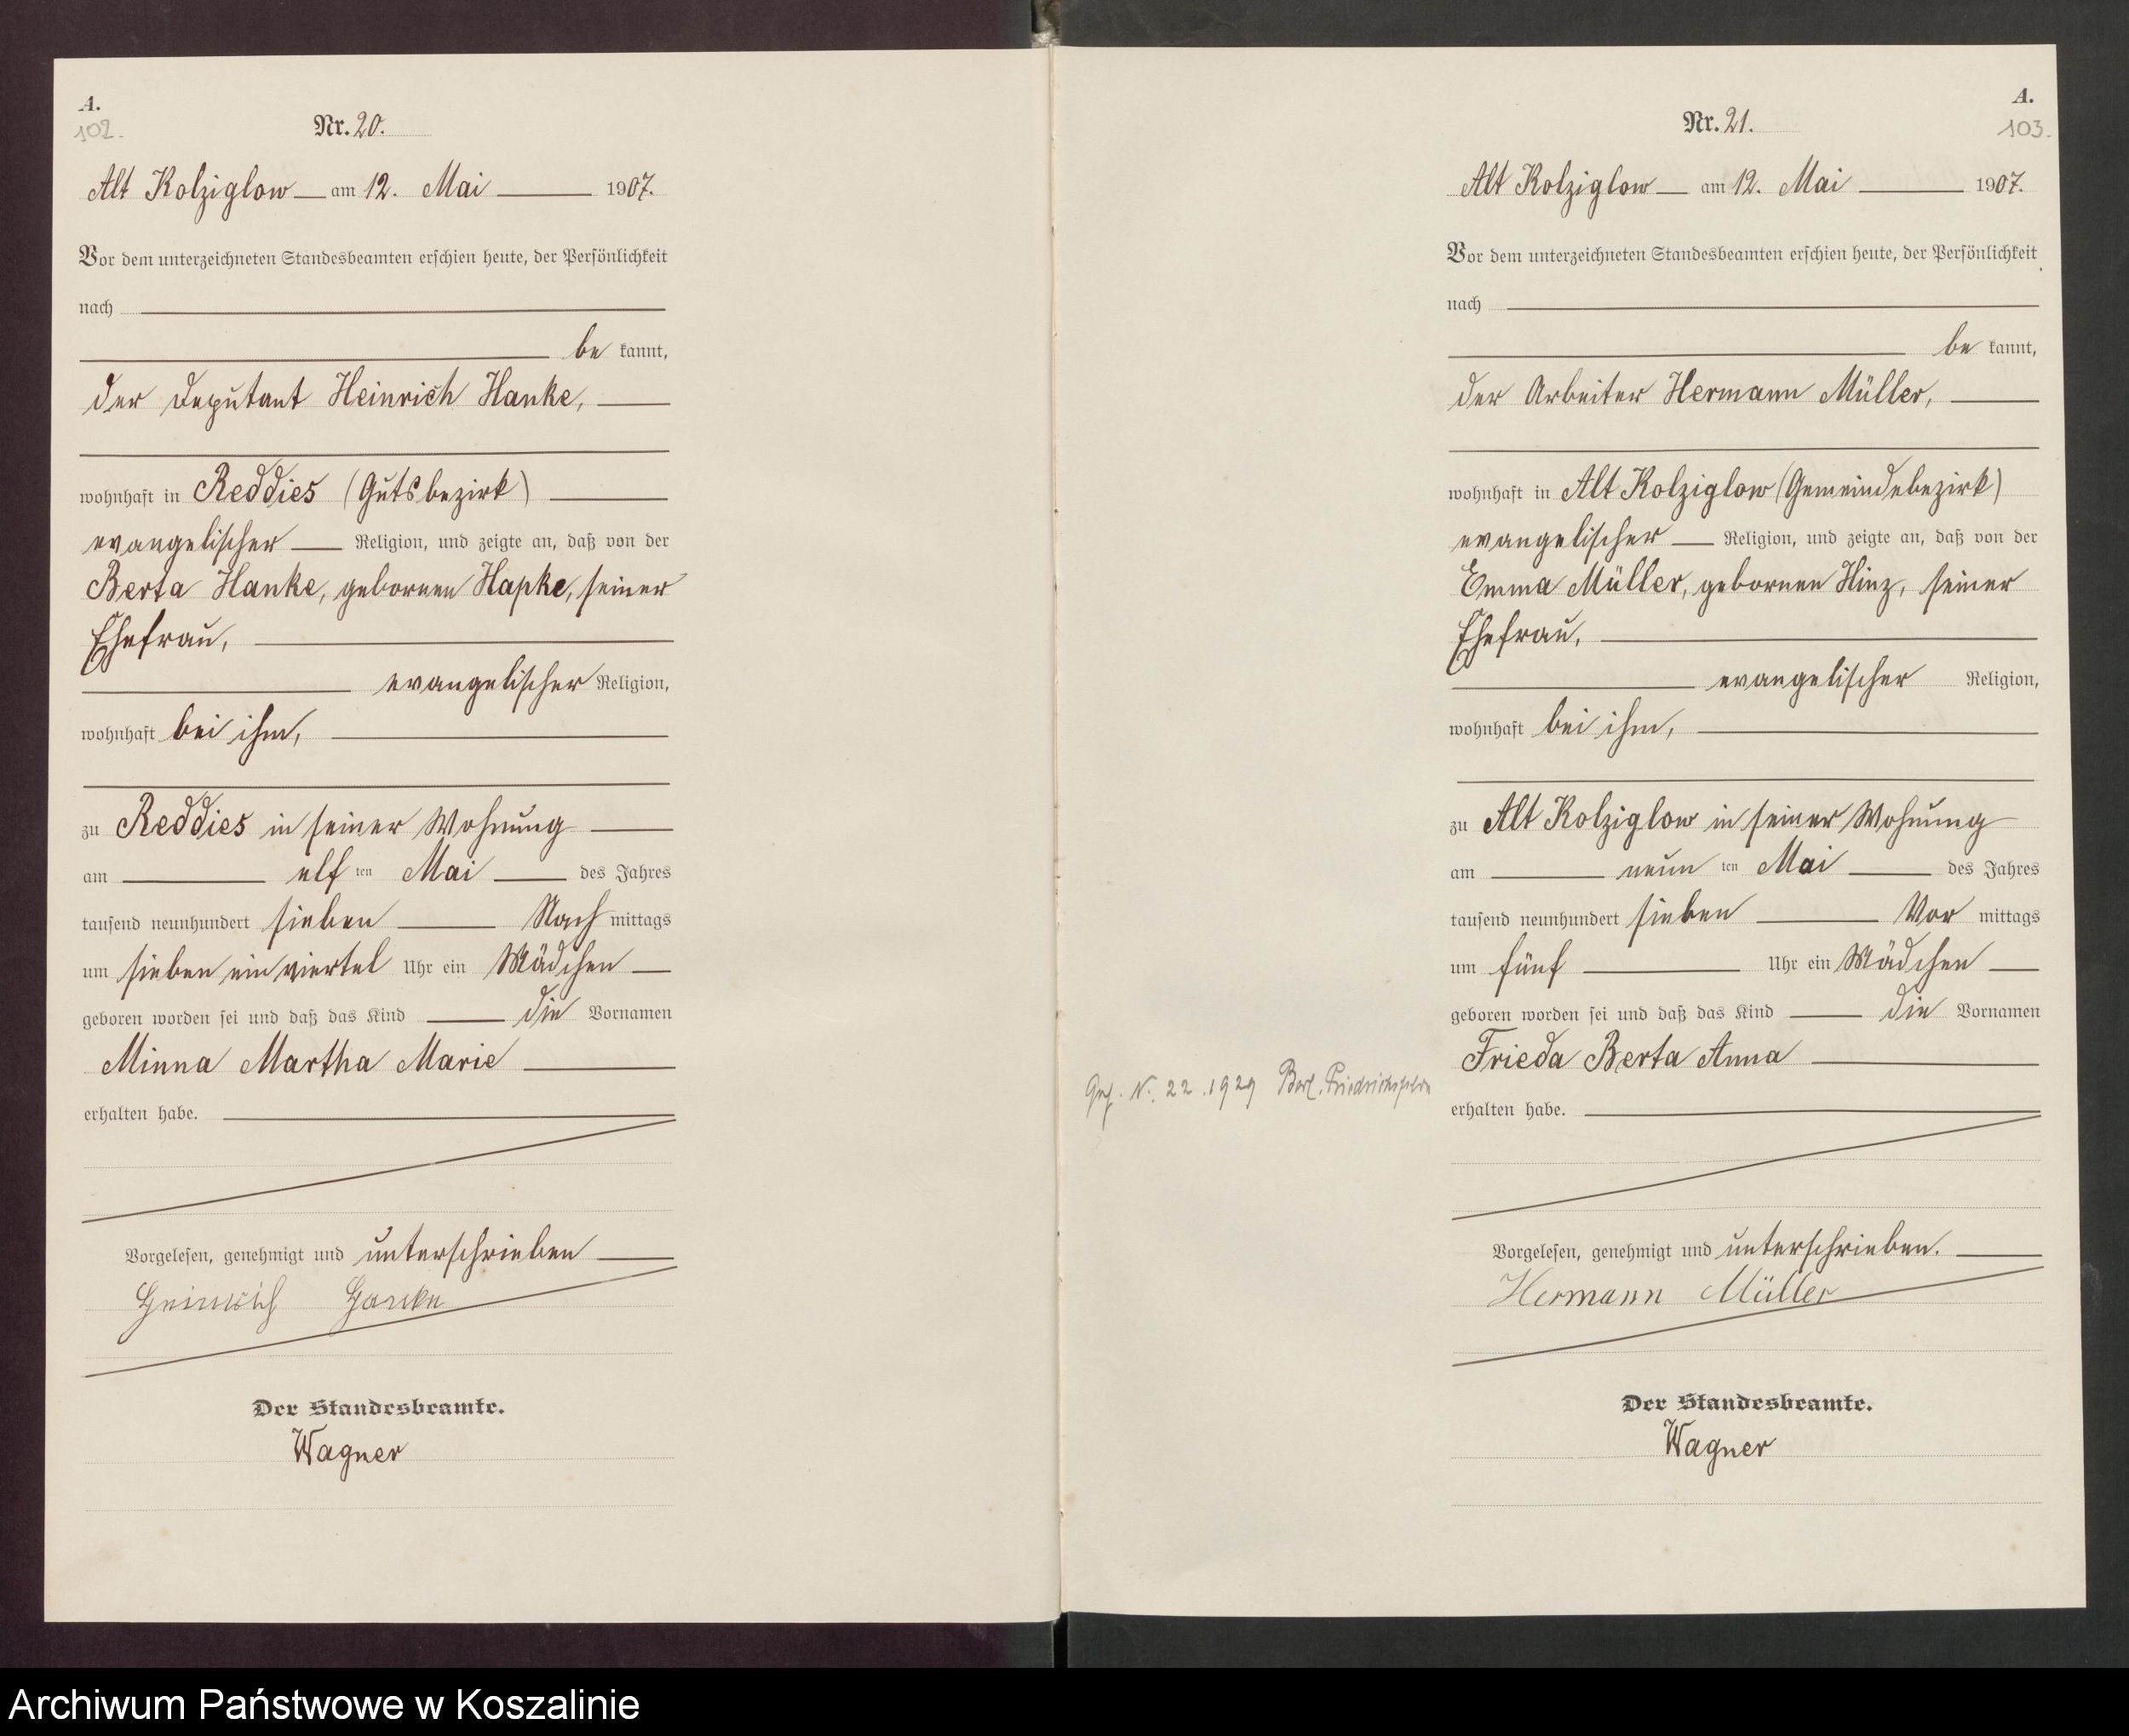 A.
102.
Nr. 20.
Alt Kolziglow am 12. Mai 1907.
Vor dem unterzeichneten Standesbeamten erschien heute, der Persönlichkeit
nach
be kannt,
der Deputant Heinrich Hanke,
wohnhaft in Reddies (Gutsbezirk)
evangelischer Religion, und zeigte an, daß von der
Berta Hanke, gebornen Hapke, seiner
Ehefrau,
evangelischer Religion,
wohnhaft bei ihm,
zu Reddies in seiner Wohnung
am elf ten Mai des Jahres
tausend neunhundert sieben Nach mittags
um sieben ein viertel Uhr ein Mädchen
geboren worden sei und daß das Kind die Vornamen
Minna Martha Marie
erhalten habe.
Vorgelesen, genehmigt und unterschrieben
Heinrich Hanke
Der Standesbeamte.
Wagner
A.
103.
Nr. 21.
Alt Kolziglow am 12. Mai 1907.
Vor dem unterzeichneten Standesbeamten erschien heute, der Persönlichkeit
nach
be kannt,
der Arbeiter Hermann Müller,
wohnhaft in Alt Kolziglow (Gemeindebezirk)
evangelischer Religion, und zeigte an, daß von der
Emma Müller, gebornen Hinz, seiner
Ehefrau,
evangelischer Religion,
wohnhaft bei ihm,
zu Alt Kolziglow in seiner Wohnung
am neun ten Mai des Jahres
tausend neunhundert sieben Vor mittags
um fünf Uhr ein Mädchen
geboren worden sei und daß das Kind die Vornamen
Frieda Berta Anna
erhalten habe.
N. 22. 1929 Berl. Friedrichsfelde
Vorgelesen, genehmigt und unterschrieben.
Hermann Müller
Der Standesbeamte.
Wagner
Archiwum Państwowe w Koszalinie